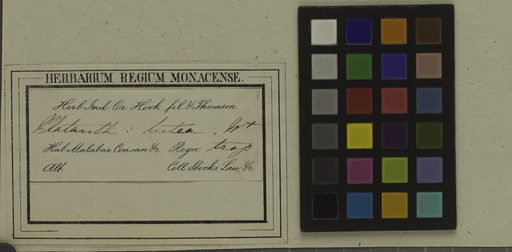 HERBARIUM REGIUM MONACENSE.
Herb. Ind. Or. Hook. fil. & Thomson
Platanth: lutea,
Hab. Malabar Concan &c. Regio trop.
Alt. Coll. Stocks Law, &c.